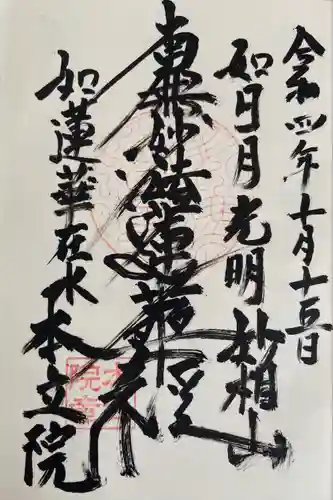 令和四年十月十五日
如日月光明 妙相山
南無妙法蓮華経
如蓮華在水 本立院